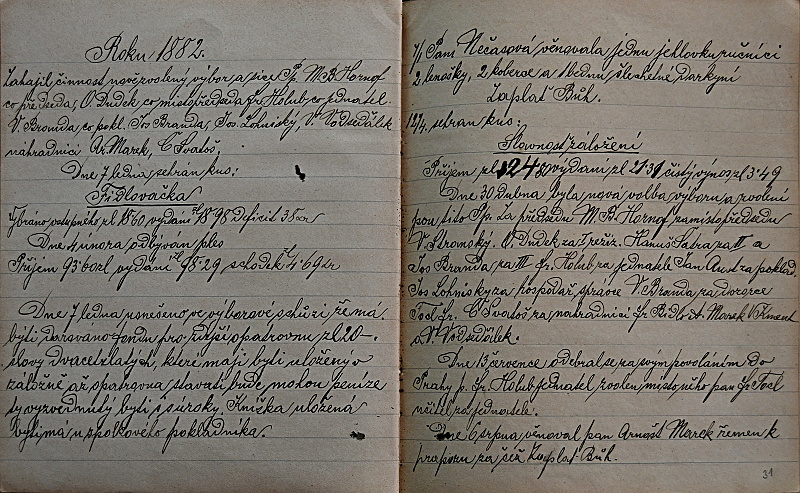 Roku 1882.
Zahájil činnost novězvolený výbor a sice Pp. M. B. Hornof
co předseda, O. Dudek co místopředseda Fr. Holub, co jednatel.
V. Bronda, co pokl. Jos Branda, Jos. Lohniský, V. Vodseďálek
náhradníci Ar. Marek, C Svatoš,
Dne 7 ledna sehrán kus:
Fidlovačka
Vybráno vstupného zl. 18·60 vydání zl 18·98 deficit 35 kr
Dne 4 února odbýván ples
Příjem 93·60 zl vydání zl 98·29 schodek zl 4·69 kr
Dne 7 ledna usnešeno ve výborové schůzi že má
býti darováno fondu pro zdejší opatrovnu zl 20–
slovy dvacet zlatých, které mají býti uloženy v
záložně až opatrovna stavati bude mohou peníze
ty vyzvednuty býti i s úroky. Knížka uložená
býti má u spolkového pokladníka.
Paní Nečasová věnovala jednu jehlovku ruční
2 lenošky, 2 koberce a 1 bednu, šlechetné dárkyni
Zaplať Bůh.
sehrán kus:
Slavnost založení
Příjem zl 24·80 vydání zl 21·31 čistý výnos zl 3·49
Dne 30 dubna byla nová volba výboru a zvoleni
jsou tito Pp. za předsedu M. B. Hornof za místopředsedu
V. Stronský. O. Dudek za I režis. Hanuš Satra za II a
Jos Branda za III Fr. Holub za jednatele Jan Aust za poklad.
Jos Lohniský za hospodář, správce V. Branda za dozorce
Focl Fr. C Svatoš za náhradníci Fr. Marek V. Kment
a V. Vodseďálek.
Dne 13 července odebral se za svým povoláním do
Prahy p. Fr. Holub jednatel zvolen místo něho pan Fr. Focl
učitel za jednatele.
Dne 6 srpna věnoval pan Arnošt Marek řemen k
praporu za což Zaplať Bůh.
31